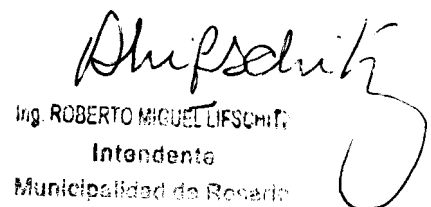 Ing. ROBERTO MIGUEL LIFSCHITZ
Intendente
Municipalidad de Rosario